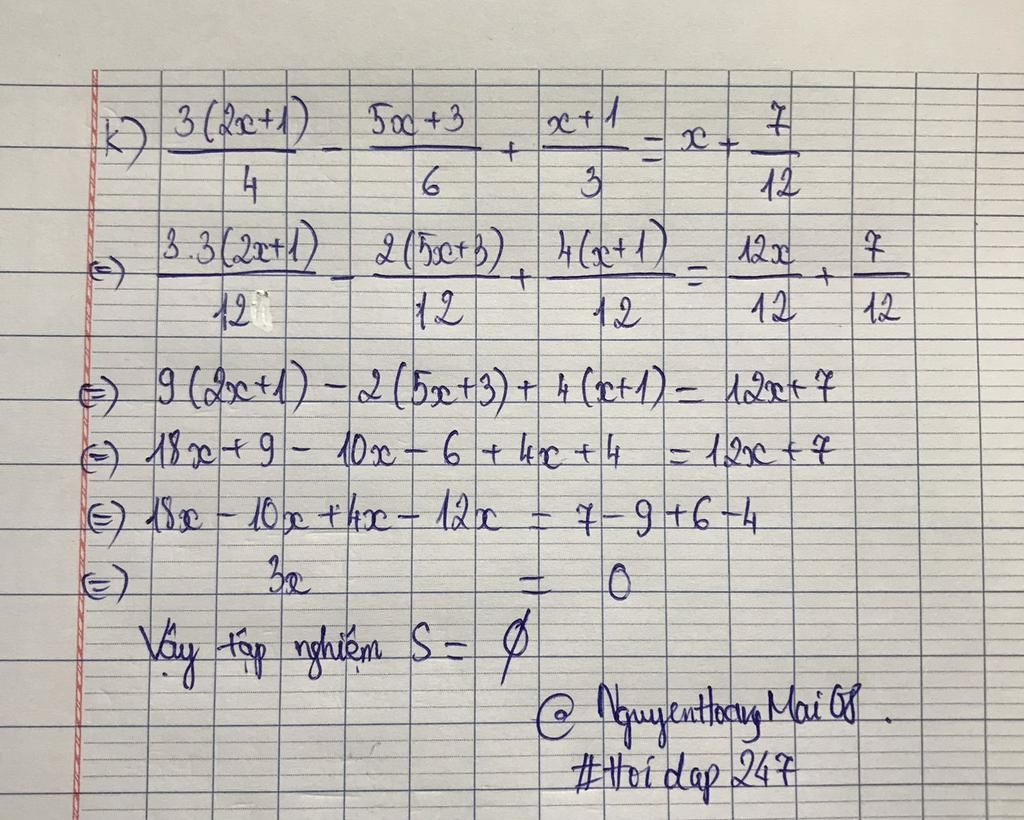 k) 3(2x+1)/4 - 5x+3/6 + x+1/3 = x + 7/12
(=) 3.3(2x+1)/12 - 2(5x+3)/12 + 4(x+1)/12 = 12x/12 + 7/12
(=) 9(2x+1) - 2(5x+3) + 4(x+1) = 12x+7
(=) 18x + 9 - 10x - 6 + 4x + 4 = 12x + 7
(=) 18x - 10x + 4x - 12x = 7 - 9 + 6 - 4
(=) 3x = 0
Vậy tập nghiệm S = ∅
@ NguyenHoangMai08.
#Hoi dap 247